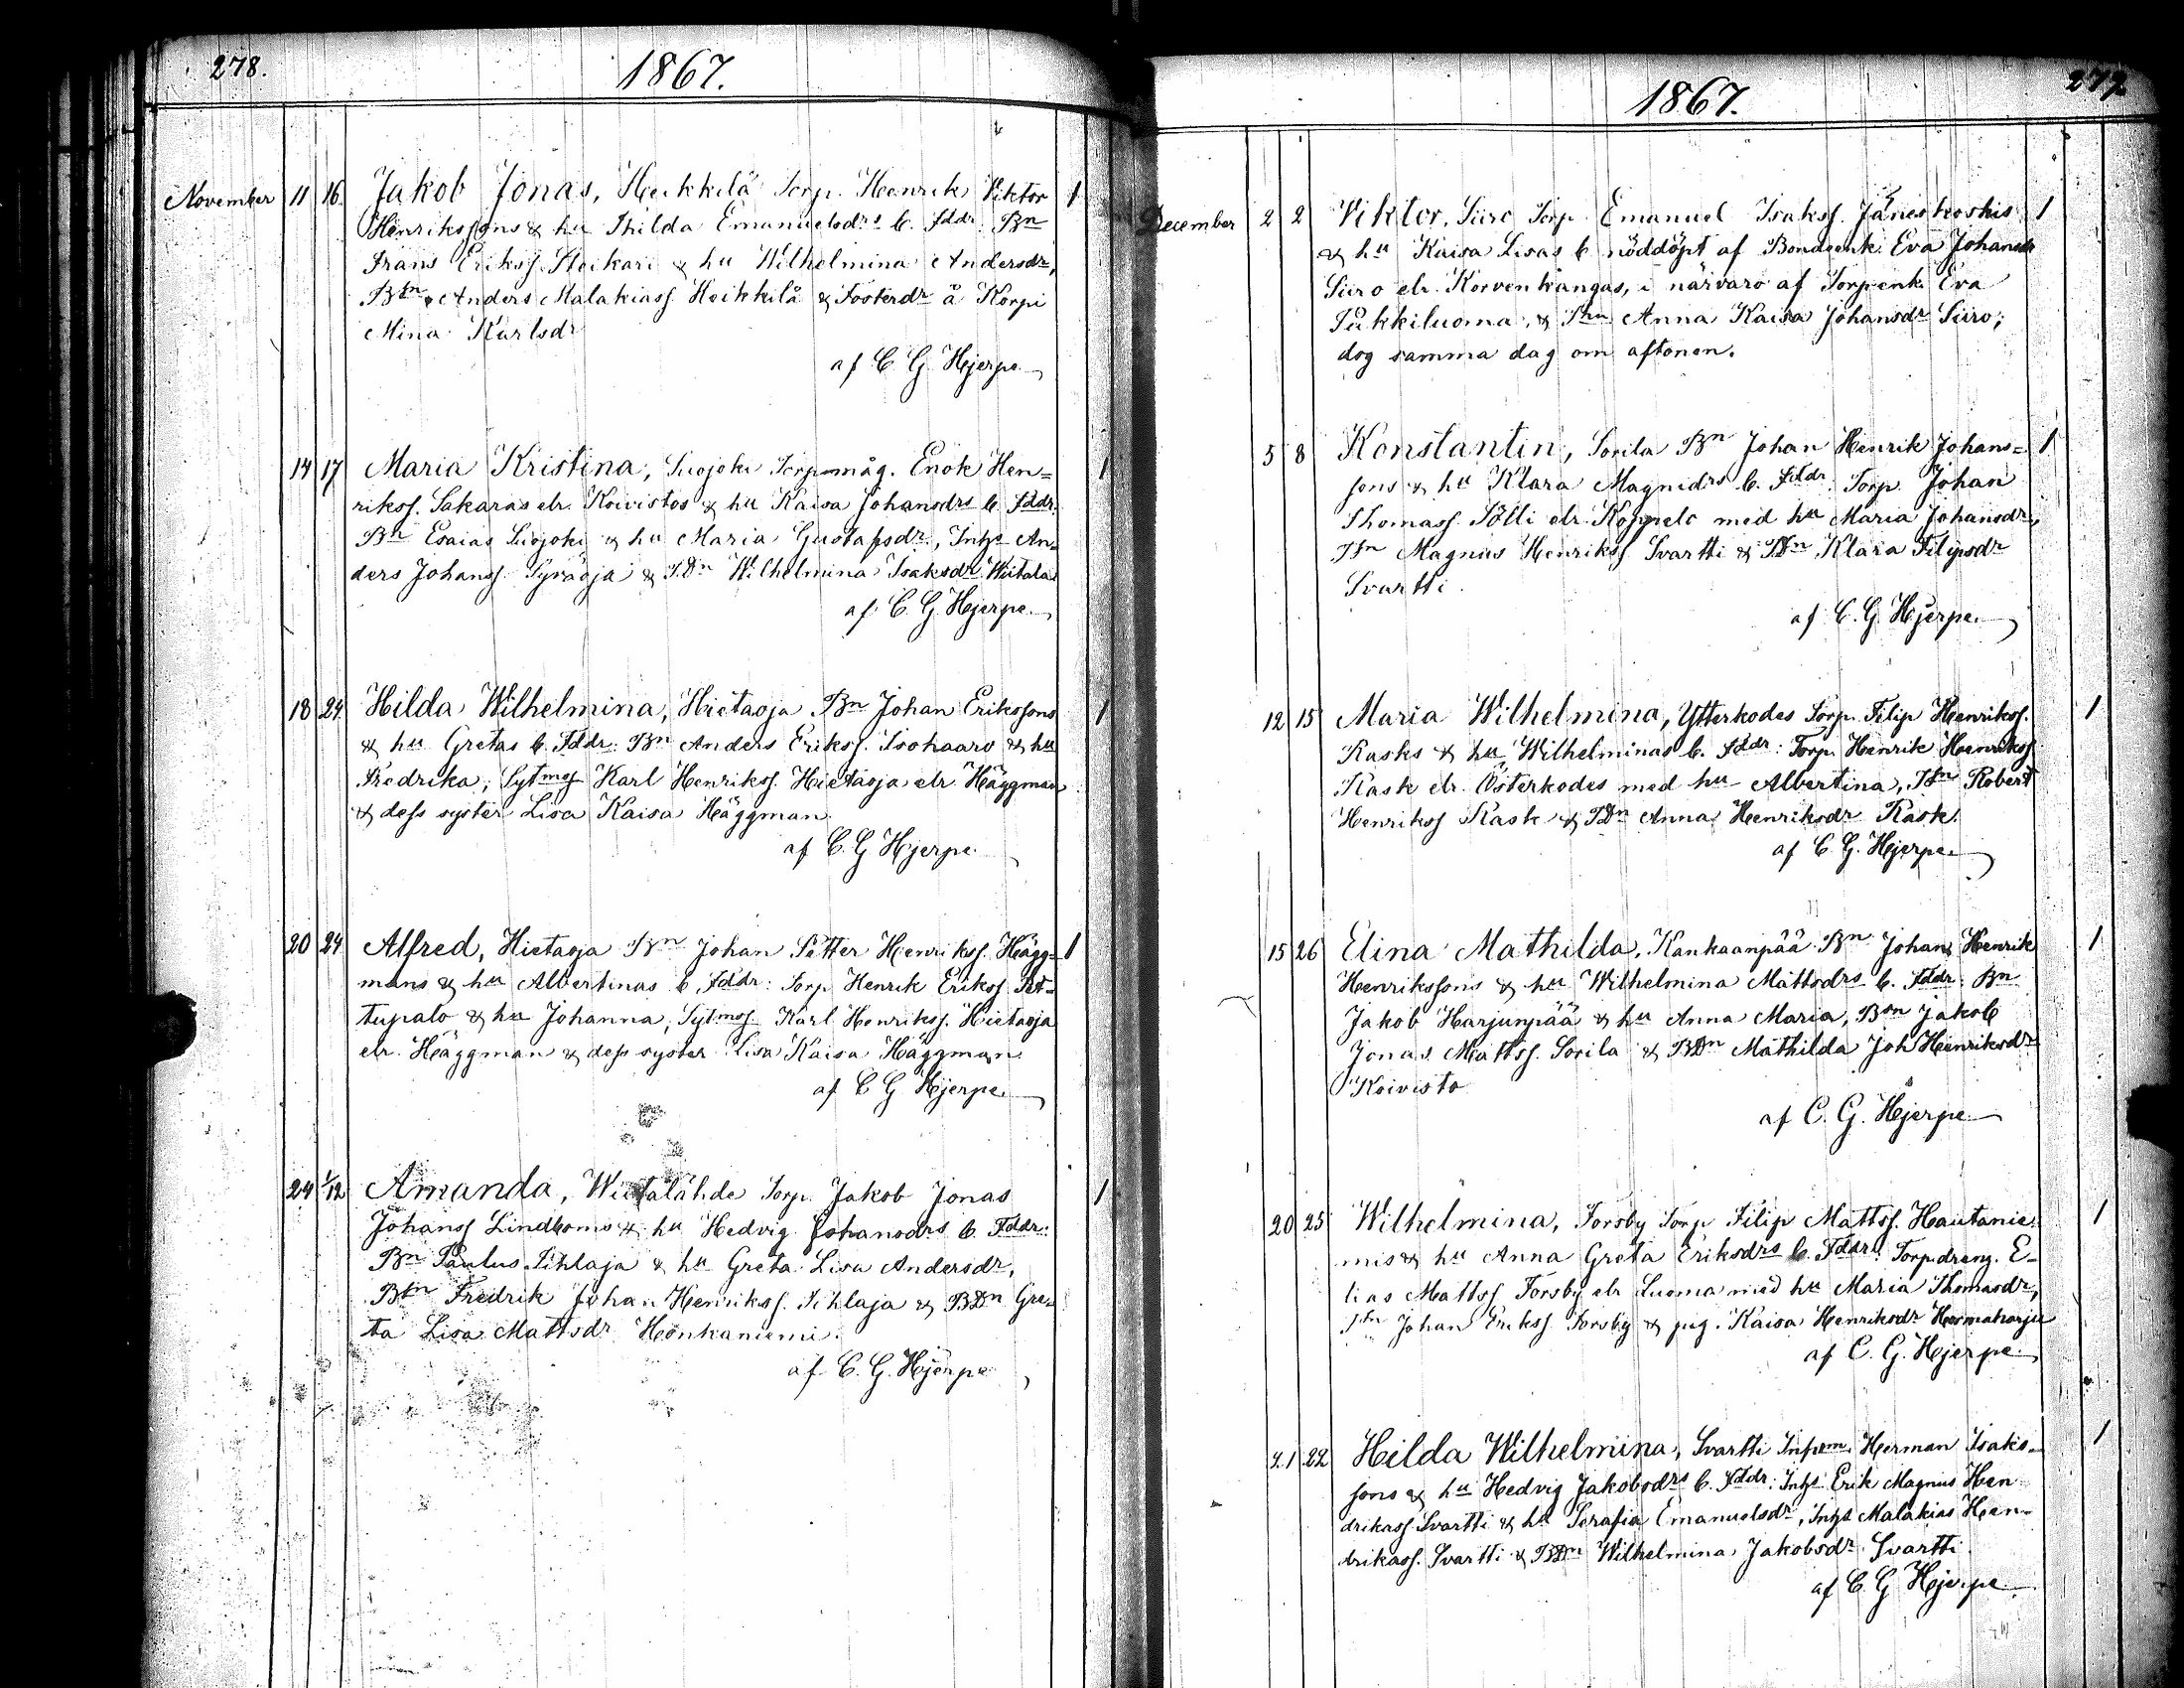 278.
1867.
November 11 16. Jakob Jonas, Heikkilä Torp. Henrik Viktor 1
Henrikssons & hu Thilda Emanuelsdrs b. Fddr: Bn
Frans Erikss. & hu Wilhelmina Andersdr,
Btn Anders Malakiass. Heikkilä & Fosterdr å Korpi
Mina Karlsdr
af C. G. Hjerpe.
14 17 Maria Kristina, Luojoki Torpmåg. Enok Hen= 1
rikss. Sakaras elr. Koivistos & hu Kaisa Johansdrs b. Fddr:
Bn Esaias Luojoki & hu Maria Gustafsdr, Inhs An-
ders Johanss. Syräoja & TDn Wilhelmina Isaksdr Wiitala.
af C. G. Hjerpe.
18 24 Hilda Wilhelmina, Hietaoja Bn Johan Erikssons 1
& hu Gretas b. Fddr: Bn Anders Erikss. Isohaaro & hu
Fredrika, Sytmg Karl Henrikss. Hietaoja elr. Häggman
& dess syster Lisa Kaisa Häggman.
af C. G. Hjerpe.
20 24 Alfred, Hietaoja Bn Johan Petter Henrikss. Hägg= 1
mans & hu Albertinas b. Fddr: Torp. Henrik Erikss. Pet-
tupalo & hu Johanna, Sytmg Karl Henrikss. Hietaoja
elr. Häggman & dess syster Lisa Kaisa Häggman.
af C. G. Hjerpe.
24 1/12 Amanda, Wiitalähde Torp. Jakob Jonas 1
Johanss Lindboms & hu Hedvig Johansdrs b. Fddr:
Bn Paulus Pihlaja & hu Greta Lisa Andersdr,
Btn Fredrik Johan Henrikss. Pihlaja & BDn Gre-
ta Lisa Mattsdr Honkaniemi.
af C. G. Hjerpe
277
1867.
December 2 2 Viktor, Siiro Torp. Emanuel Isakss. Jäneskoskis 1
& hu Kaisa Lisas b. nöddöpt af Bondeenk. Eva Johansdr
Siiro elr. Korvenkangas, i närvaro af Torpenk. Eva
Pukkiluoma, & Thu Anna Kaisa Johansdr Siiro;
dog samma dag om aftonen.
5 8 Konstantin, Sorila Bn Johan Henrik Johans= 1
sons & hu Klara Magnidrs b. Fddr: Torp. Johan
Thomass. Pölli elr. Koppelo med hu Maria Johansdr,
Ttn Magnus Henrikss. Svartti & TDn Klara Filipsdr
Svartti.
af C. G. Hjerpe.
12 15 Maria Wilhelmina, Ytterkodes Torp. Filip Henrikss. 1
Rasks & hu Wilhelminas b. Fddr: Torp. Henrik Henrikss
Rask elr. Österkodes med hu Albertina, Ttn Robert
Henrikss Rask & TDn Anna Henriksdr Rask.
af C. G. Hjerpe.
15 26 Elina Mathilda, Kankaanpää Bn Johan Henrik 1
Henrikssons & hu Wilhelmina Mattsdrs b. Fddr: Bn
Jakob Harjunpää & hu Anna Maria, Bsn Jakob
Jonas Mattss. Sorila & BDn Mathilda Joh Henriksdr
Koivisto
af C. G. Hjerpe.
20 25 Wilhelmina, Forsby Torp Filip Mattss. Hautanie= 1
mis & hu Anna Greta Eriksdrs b. Fddr: Torpdreng. E-
lias Mattss Forsby elr Luoma med hu Maria Thomasdr,
Ttn Johan Erikss Forsby & pig. Kaisa Henriksdr Harmaharju
af C. G. Hjerpe.
21 22 Hilda Wilhelmina, Svartti Inhsm. Herman Isaks= 1
sons & hu Hedvig Jakobsdrs b. Fddr: Inhs Erik Magnus Hen
drikass. Svartti & hu Serafia Emanuelsdr, Inhs Malakias Hen-
drikass. Svartti & BDn Wilhelmina Jakobsdr Svartti.
af C. G. Hjerpe